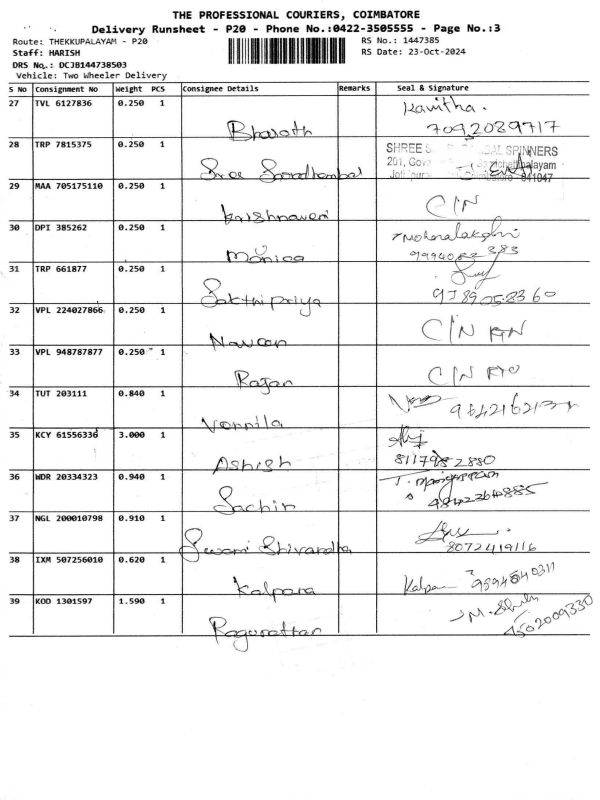 THE PROFESSIONAL COURIERS, COIMBATORE
Delivery Runsheet - P20 - Phone No.:0422-3505555 - Page No.:3
Route: THEKKUPALAYAM - P20 RS No.: 1447385
Staff: HARISH RS Date: 23-Oct-2024
DRS No.: DCJB144738503
Vehicle: Two Wheeler Delivery
S No Consignment No Weight PCS Consignee Details Remarks Seal & Signature
27 TVL 6127836 0.250 1 Kavitha.
Bharath 7092089717
28 TRP 7815375 0.250 1 SHREE SPINNERS
201,
Sree
29 MAA 705175110 0.250 1 C/N
Krishnaveni
30 DPI 385262 0.250 1
Monica
31 TRP 661877 0.250 1
Sakthipriya 9789058360
32 VPL 224027866 0.250 1 C/N
Naveen
33 VPL 948787877 0.250 1 C/N
Rajan
34 TUT 203111 0.840 1
Vennila
35 KCY 61556336 3.000 1
Ashish 8117982880
36 WDR 20334323 0.940 1
Sachin
37 NGL 200010798 0.910 1
Swami 8072419116
38 IXM 507256010 0.620 1
Kalpana
39 KOD 1301597 1.590 1